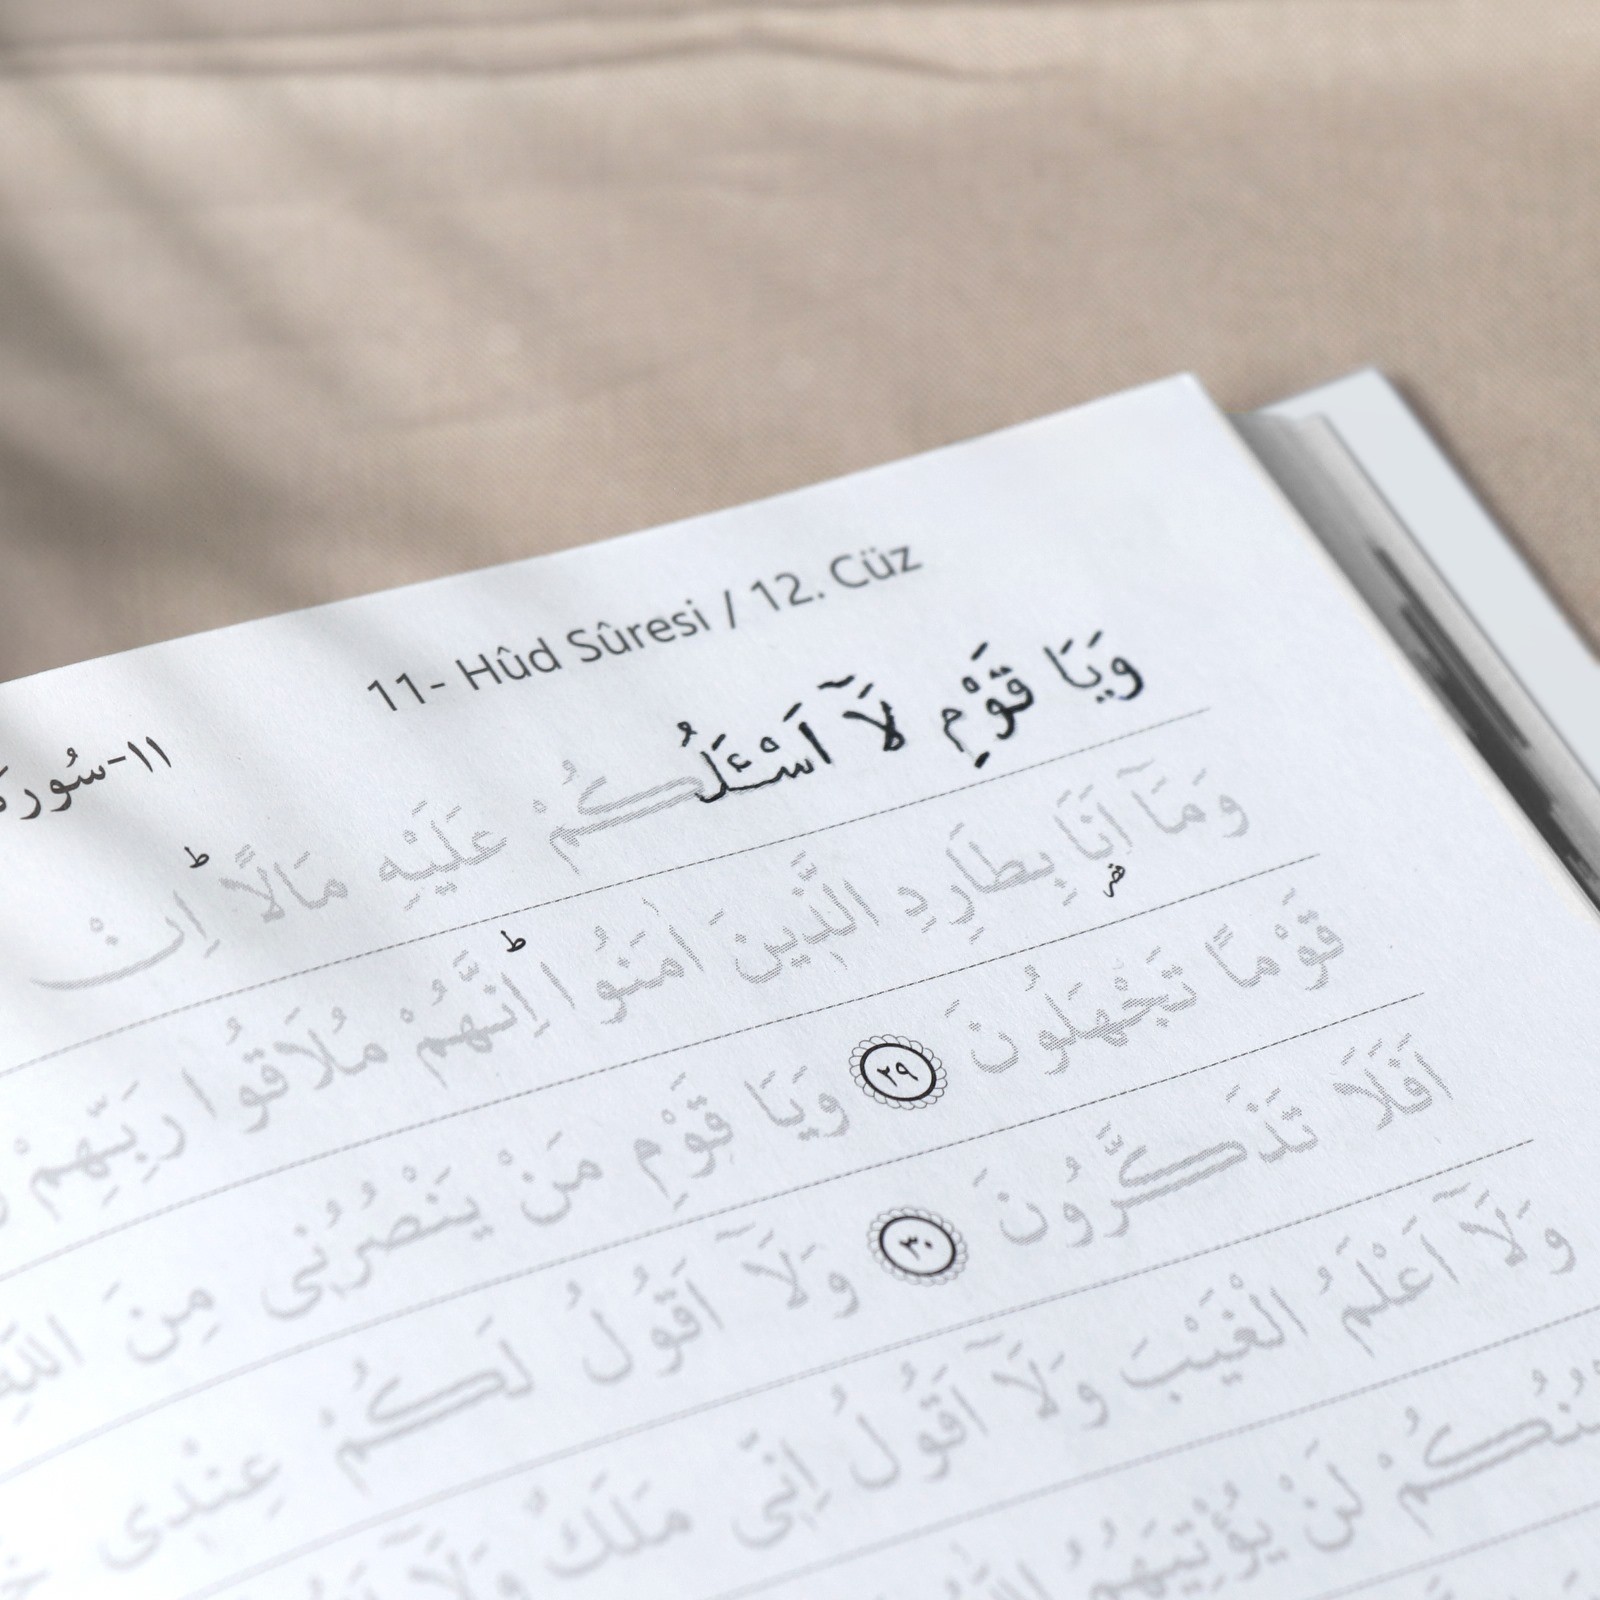 11- Hûd Sûresi / 12. Cüz
١١-سُورَة
وَيَا قَوْمِ لَٓا اَسْـَٔلُكُمْ عَلَيْهِ مَالًاۜ اِنْ
وَمَٓا اَنَا۬ بِطَارِدِ الَّذ۪ينَ اٰمَنُواۜ اِنَّهُمْ مُلَاقُوا رَبِّهِمْ
قَوْمًا تَجْهَلُونَ ٢٩ وَيَا قَوْمِ مَنْ يَنْصُرُن۪ى مِنَ اللّٰهِ
اَفَلَا تَذَكَّرُونَ ٣٠ وَلَٓا اَقُولُ لَكُمْ عِنْد۪ى
وَلَٓا اَعْلَمُ الْغَيْبَ وَلَٓا اَقُولُ اِنّ۪ى مَلَكٌ وَلَٓا
لَنْ يُؤْتِيَهُمُ